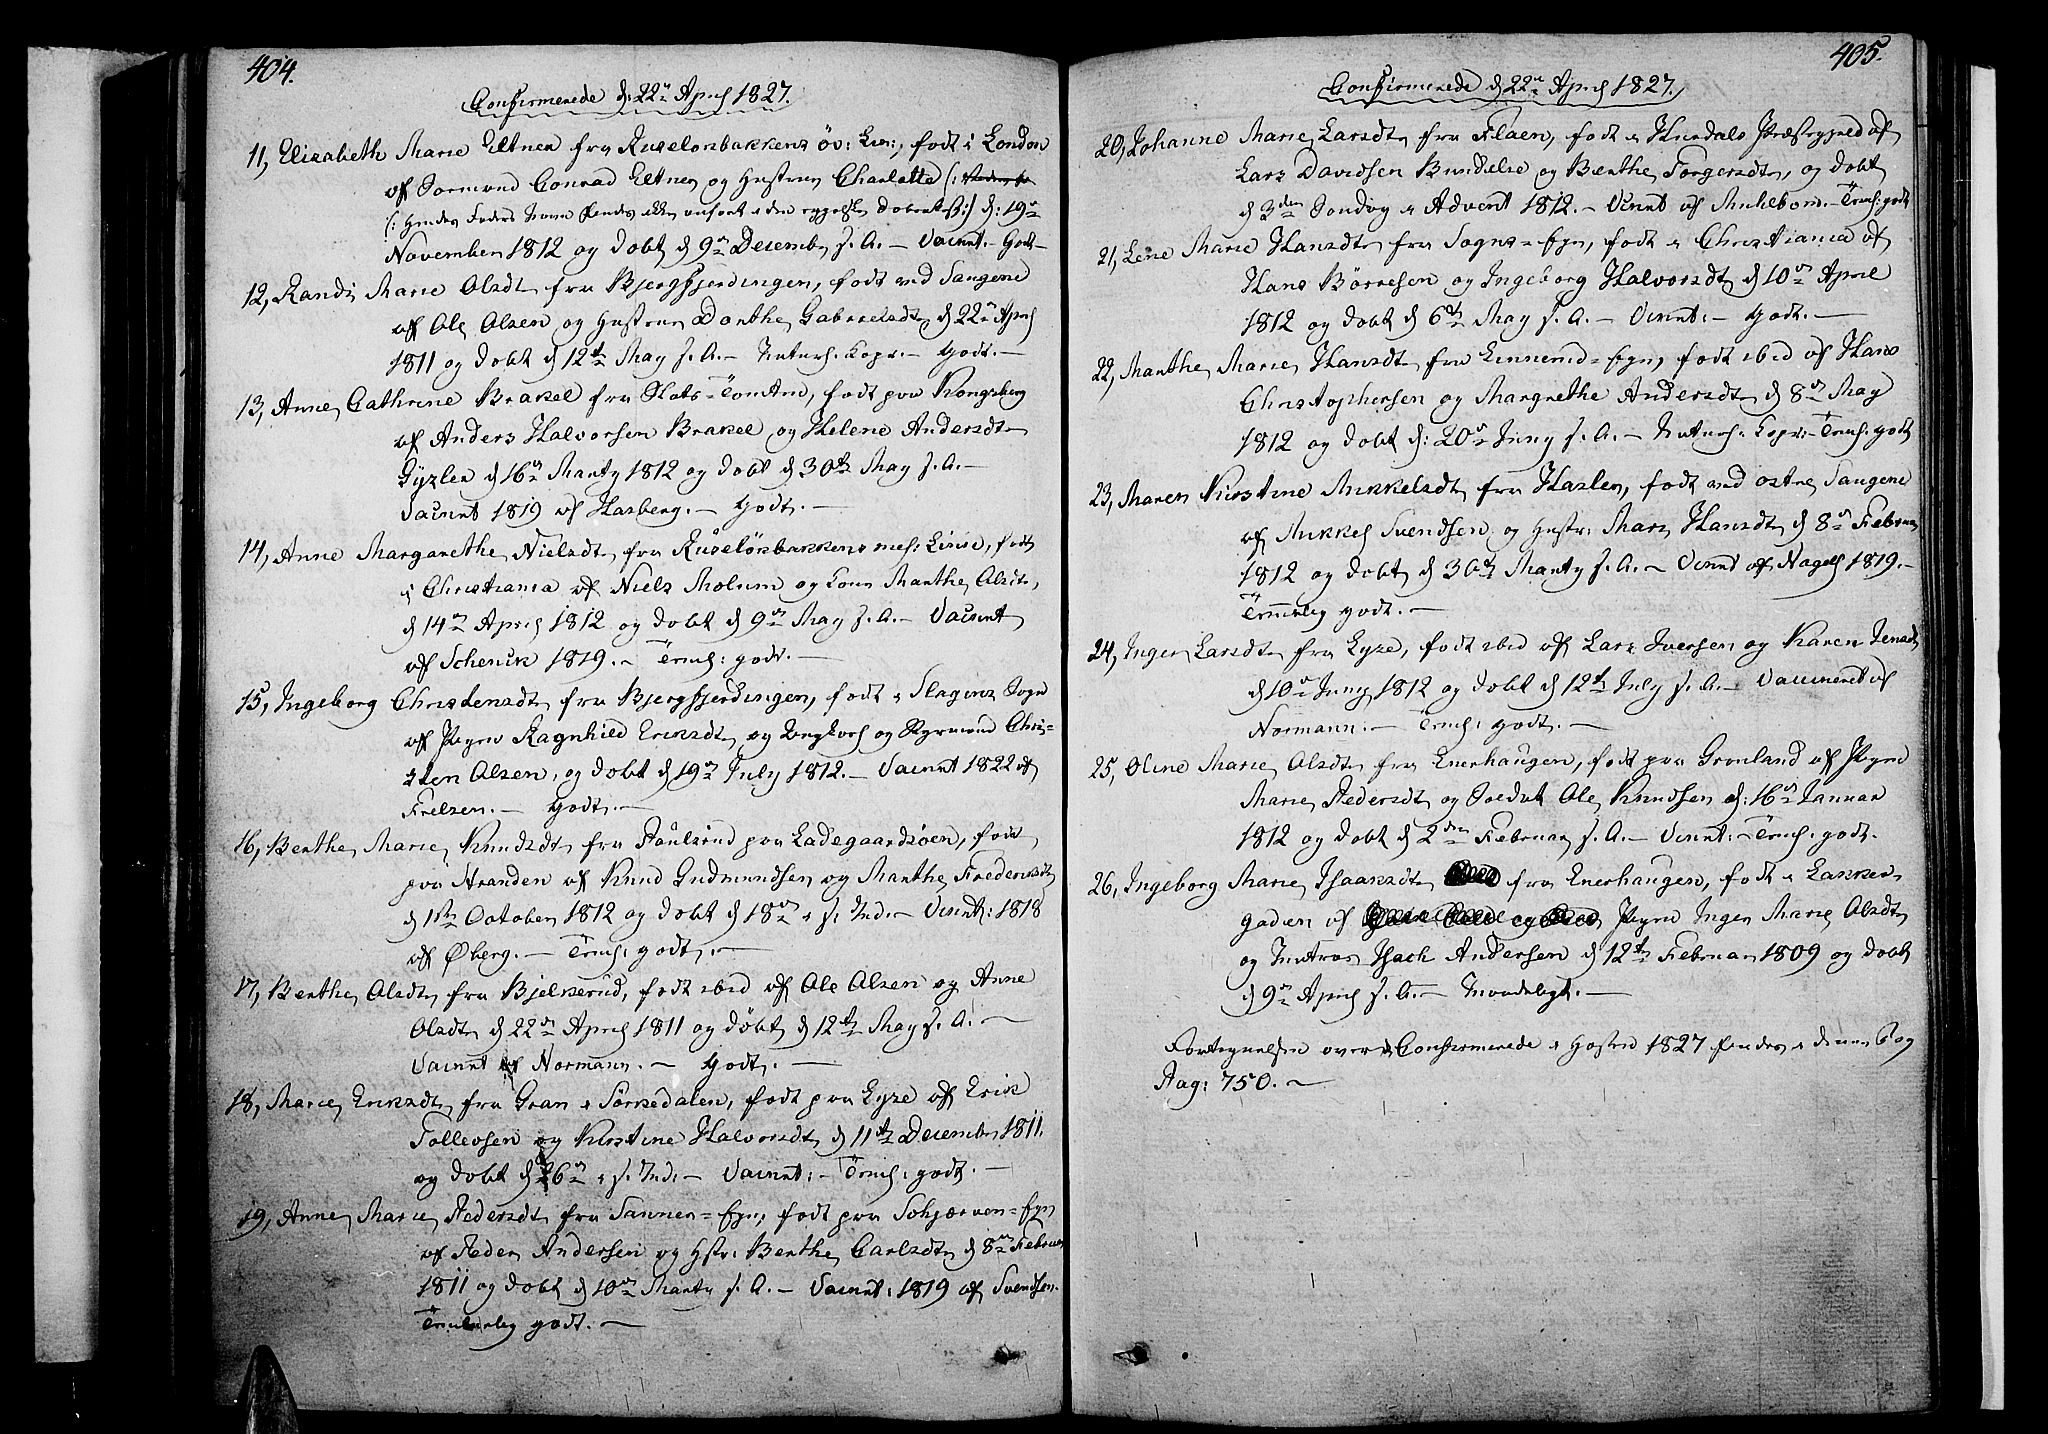 404.
Confirmerede d: 22n April 1827.
11, Elisabeth Marie Eltner fra Ruseløsbakkens öv: Lin:, født i London
af Formand Conrad Eltner og Hustrue Charlotte (:
(: Hendes Faders Navn findes ikke anført i den Døbeattest :) d: 19n
November 1812 og døbt d 9n Decembr s. A. – Vaccint. – Godt –
12, Randi Marie Olsdtr fra Bjergfjerdingen, født ved Saugene
af Ole Olsen og Hustrue Dorthe Gabrielsdtr d 22n April
1811 og døbt d 12te May s. A. – Naturl: Kopr. – Godt. –
13, Anne Cathrine Brakel fra Slots-Tomten, født paa Kongsberg
af Anders Halvorsen Brakel og Helene Andersdtr
Gyzler d 16n Marty 1812 og døbt d 30te May s. A. –
Vaccint 1819 af Hasberg. – Godt. –
14, Anne Margarethe Nielsdtr fra Ruseløsbakkens mel: Linie, født
i Christiania af Niels Molum og Kone Marthe Olsdtr,
d 14n April 1812 og døbt d 9n May s. A. – Vaccint
af Schenck 1819. – Teml: godt. –
15, Ingeborg Christensdtr fra Bjergfjerdingen, født i Slagens Sogn
af Pigen Ragnhild Eriksdtr og Ungkarl og Styrmand Chri=
sten Olsen, og døbt d 19n July 1812. – Vaccint 1822 af
Frelsen. – Godt. –
16, Berthe Marie Knudsdtr fra Paulsrud paa Ladegaardsøen, født
paa Stranden af Knud Gudmundsen og Marthe Frederiksdtr
d 1ste October 1812 og døbt d 18n i s. Md. – Vaccint: 1818
af Øberg. – Teml: godt. –
17, Berthe Olsdtr fra Bjelkerud, født ibid af Ole Olsen og Anne
Olsdtr d 22n April 1811 og døbt d 12te May s. A. –
Vaccint af Normann. – Godt. –
18, Marie Eriksdtr fra Gran i Sørkedalen, født paa Lyse af Erik
Tollevsen og Kirstine Halvorsdtr d 11te Decembr 1811.
og døbt d 26n i s. Md: – Vaccint: – Teml: godt. –
19, Anne Marie Pedersdtr fra Sannen=Eyn, født paa =Eyn
af Peder Andersen og Hstr: Berthe Carlsdtr d 8n Februar
1811 og døbt d 10n Marty s. A. – Vaccint: 1819 af Svendsen.
Temmelig godt. –
405.
Confirmerede d 22n April 1827.
20, Johanne Marie Larsdtr fra Flaen, født i Hurdals Præstegjeld af
Lars Davidsen Bundlie og Berthe Torgersdtr, og døbt
d 3die Søndag i Advent 1812. – Vaccint af Muhlbom. – Teml: godt
21, Lene Marie Hansdtr fra Sogns=Eyn, født i Christiania af
Hans Børresen og Ingeborg Halvorsdtr d 10n April
1812 og døbt d 6te May s. A. – Vaccint: – Godt. –
22, Marthe Marie Hansdtr fra Linnerud=Eyn, født ibid af Hans
Christophersen og Margrethe Andersdtr d 8n May
1812 og døbt d: 20n Juny s. A. – Naturl: Kopr: – Teml: godt
23, Maren Kirstine Mikkelsdtr fra Haslen, født ved østre Saugene
af Mikkel Svendsen og Hustr: Mari Hansdtr d 8n Februar
1812 og døbt d 30te Marty s. A. – Vaccint af Nagell 1819. –
Temmelig godt. –
24, Inger Larsdtr fra Lyse, født ibid af Lars Iversen og Karen Jensdtr
d 10n Juny 1812 og døbt d 12te July s. A. – Vaccineret af
Normann. – Teml: godt. –
25, Oline Marie Olsdtr fra Enerhaugen, født paa Grønland af Pigen
Marie Pedersdtr og Soldat Ole Knudsen d: 16n Januar
1812 og døbt d 2den Februar s. A. – Vaccint: – Teml: godt.
26, Ingeborg Marie Isaaksdtr fra Enerhaugen, født i Lakker=
gaden af Pigen Inger Marie Olsdtr
og Matros Isach Andersen d 12te Februar 1809 og døbt
d 9n April s. A. – Maadeligt. –
Fortegnelsen over Confirmerede i Høsten 1827 findes i denne Bog
Pag: 750. –